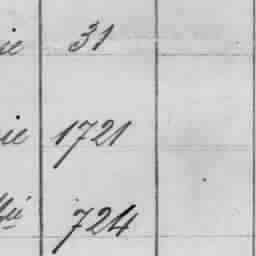 ie 31
ie 1721
724